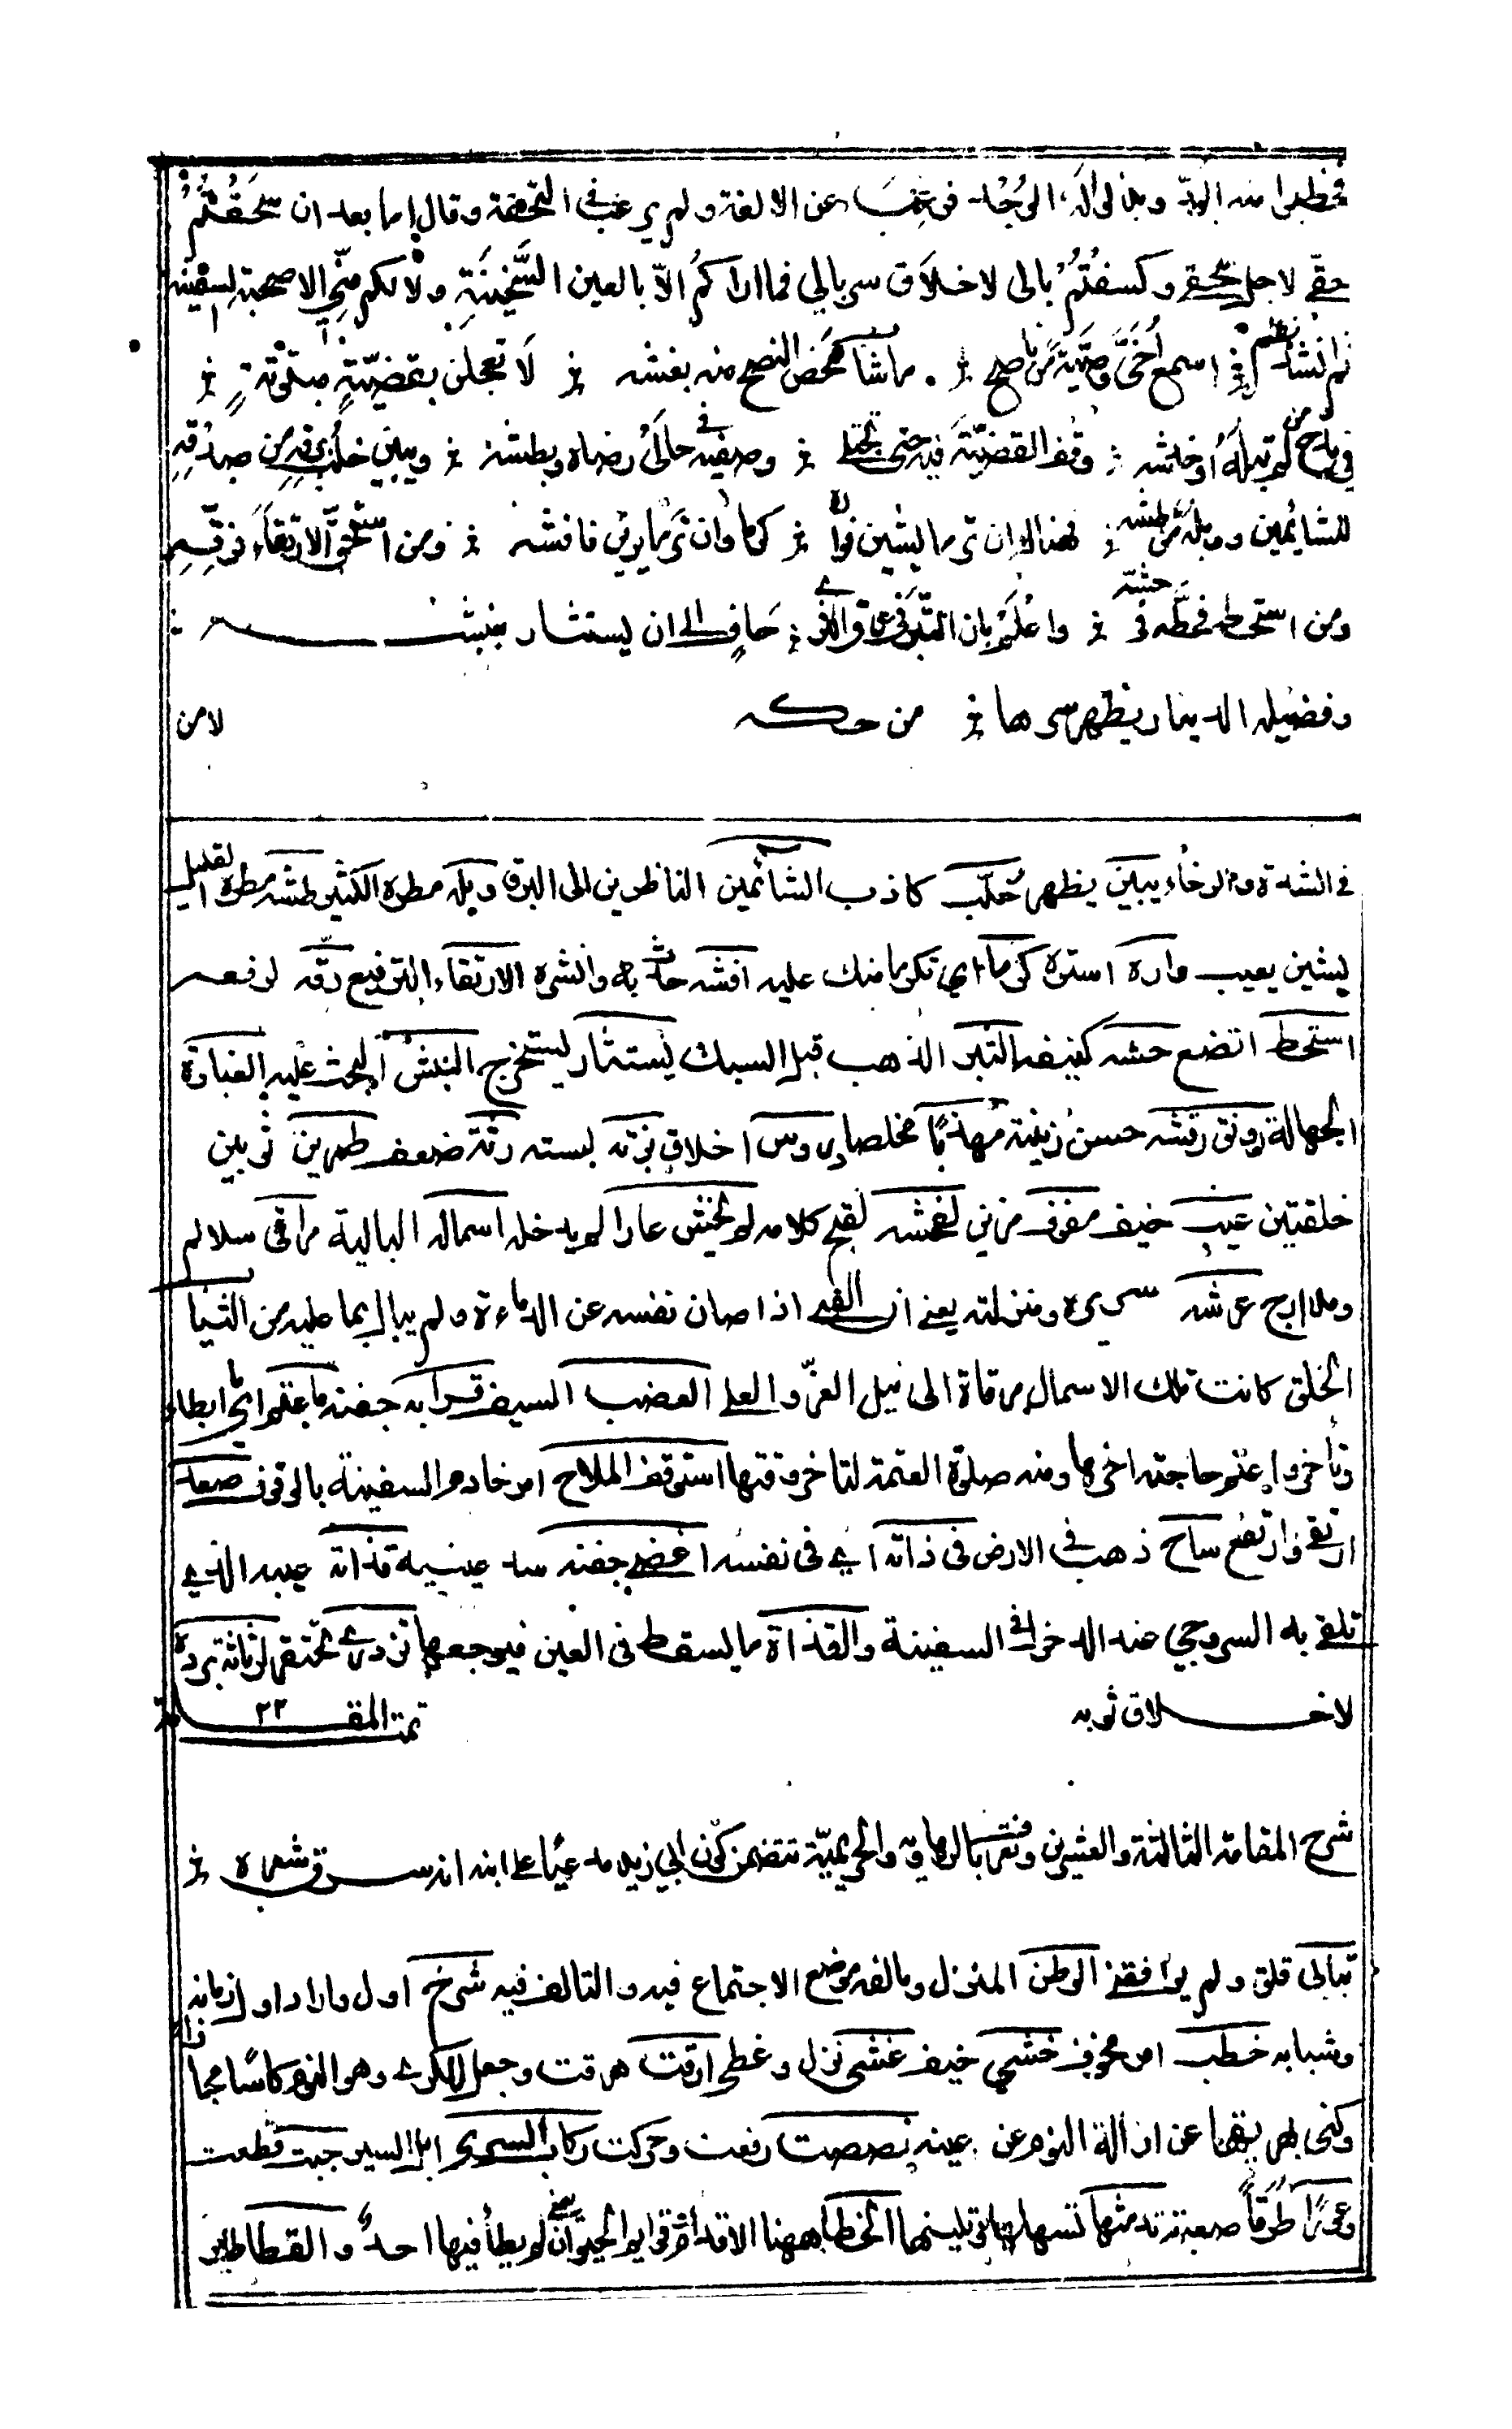 فخطبوا منه الودّ وبذلوا له الوُجْد فرغب عن الالفة ولم يرغب في التحفة وقال اما بعد ان سَحَقْتُمْ
حقّي لاجل سحقي وكسفتُمْ بالى لاخلاق سربالي فما اراكمُ الاّ بالعين السَّخينَةِ ولا لكم منّي الا صحبة السفينة
ثم انشد نظم اسمع أُخَيَّ وصيّةً من ناصح ؛ ما شاب محض النصح منه بغشه ؛ لا تعجلن بقضيّةٍ مبتوتةٍ ؛
في مدح من لم تبلُهُ او خدشه ؛ وقف القضيّة فيه حتى تجتلي ؛ وصفيه في حالَيْ رضاه وبطشه ؛ ويبين خلّب برقه من صدقه
للشائمين ووبله من طشه ؛ فهناك ان تر ما يشين فواره ؛ كرما وان تر ما يزين فافشه ؛ ومن استحقّ الارتقاء فرقّه
ومن استحط فحطّه في حشّه ؛ واعلم بان التبر في عرق الثرى ؛ خافٍ الى ان يستثار بنبشه ؛
وفضيلة الدينار يظهر سرها ؛ من حكه لا من
في الشدة والرخاء يبين يظهر خُلّب كاذب الشائمين الناظرين الى البرق وبله مطره الكثير طشه مطره القليل
يشين يعيب واره استره كرما اي تكرما منك عليه افشه حدّث به وانشره الارتقاء الترفيع رقّه ارفعه
استحط اتضع حشه كنيفه التبر الذهب قبل السبك يستثار يستخرج النبش البحث عليه الغباوة
الجهالة رونق رقشه حسن زينته مهذبًا مخلصا دروس اخلاق بزته لبسته رثة ضعف طمرين ثوبين
خلقين عيب خيف مفوف مزين لفحشه لقبح كلامه لم يخش عارا لم يدخل اسماله البالية مراقي سلالم
ومدارج عرشه سريره ومنزلته يعني ان الفتى اذا صان نفسه عن الدناءة ولم يبال بما عليه من الثياب
الخلق كانت تلك الاسمال مرقاة الى نيل العزّ والعلى العضب السيف قرابه جفنه ما عتم اي ما ابطاء
وتأخر واعتم حاجته اخرها ومنه صلوة العتمة لتاخر وقتها استوقف الملاح امر خادم السفينة بالوقوف صعد
ارتقى وارتفع ساح ذهب في الارض في ذاته اي في نفسه اغضى جفنه سد عينيه قذاته عيبه الذي
تلقي به السروجي عند الدخول في السفينة والقذاة ما يسقط في العين فيوجعها تزدري تحتقر لرثاثة برده
لاخلاق ثوبه تمت المقـ ٢٢
شرح المقامة الثالثة والعشرين وتعرف بالوهاوية والحريمية تتضمن كون ابي زيد مدعيًا على ابنه انه سرق شعره ؛
تبالى قلق ولم يوافقني الوطن المنزل ومالفه موضع الاجتماع فيه والتالف فيه شرخ اول واراد اول زمانه
وشبابه خطب امر مخوف خشي خيف غشى نزل وغطى ارقت هرقت وجعل للكرى وهو النوم كاسًا مجازا
وكنى بهريقها عن ازالة النوم عن عينه نصصت رفعت وحركت ركاب السرى ابل السير جبت قطعت
وعورًا طرقًا صعبة تدمثها تسهلها وتلينها الخطا ههنا الاقدام لم يطأ فيها احدٌ والقطا طائر